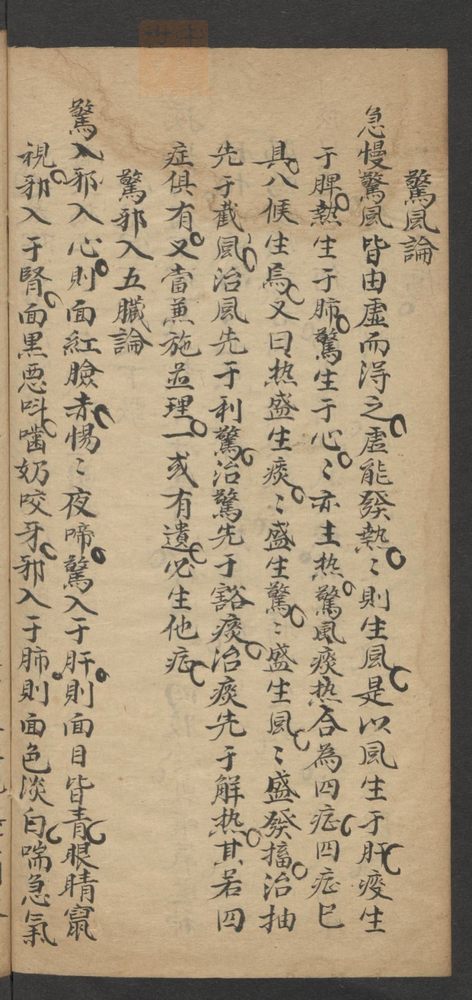 驚風論
急慢驚風皆由虛而得之虛能發熱〻則生風是以風生于肝痰生
于脾熱生于肺驚生于心〻亦主热驚風痰热合為四症四症已
具八候生焉又曰热盛生痰〻盛生驚〻盛生風〻盛發搐治抽
先于截風治風先于利驚治驚先于豁痰治痰先于解热其若四
症俱有又當兼施並理一或有遺必生他症
驚邪入五臟論
驚入邪入心則面紅臉赤惕〻夜啼驚入于肝則面目皆青眼睛竄
視邪入于腎面黑悪呌嚙奶咬牙邪入于肺則面色淡白喘急氣